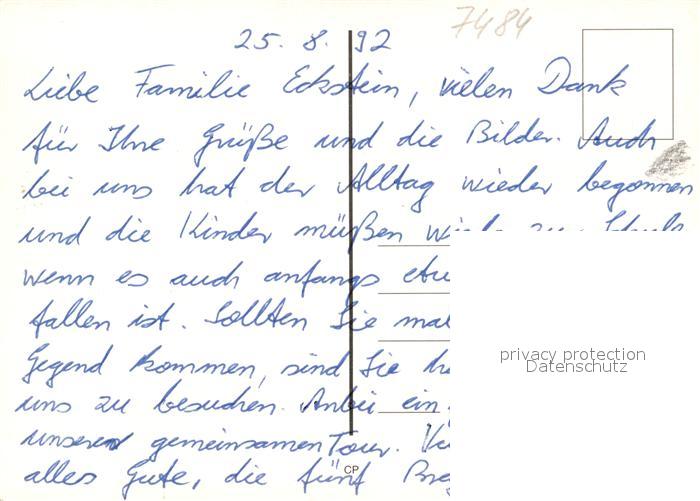 7484
25. 8. 92
Liebe Familie Eckstein, vielen Dank
für Ihre Grüße und die Bilder. Auch
bei uns hat der Alltag wieder begonnen
und die Kinder müßen
wenn es auch anfangs
fallen ist. Sollten Sie mal
Gegend kommen, sind Sie
uns zu besuchen. Anbei ein
unseren gemeinsamen Tour.
alles Gute, die fünf
CP
privacy protection
Datenschutz